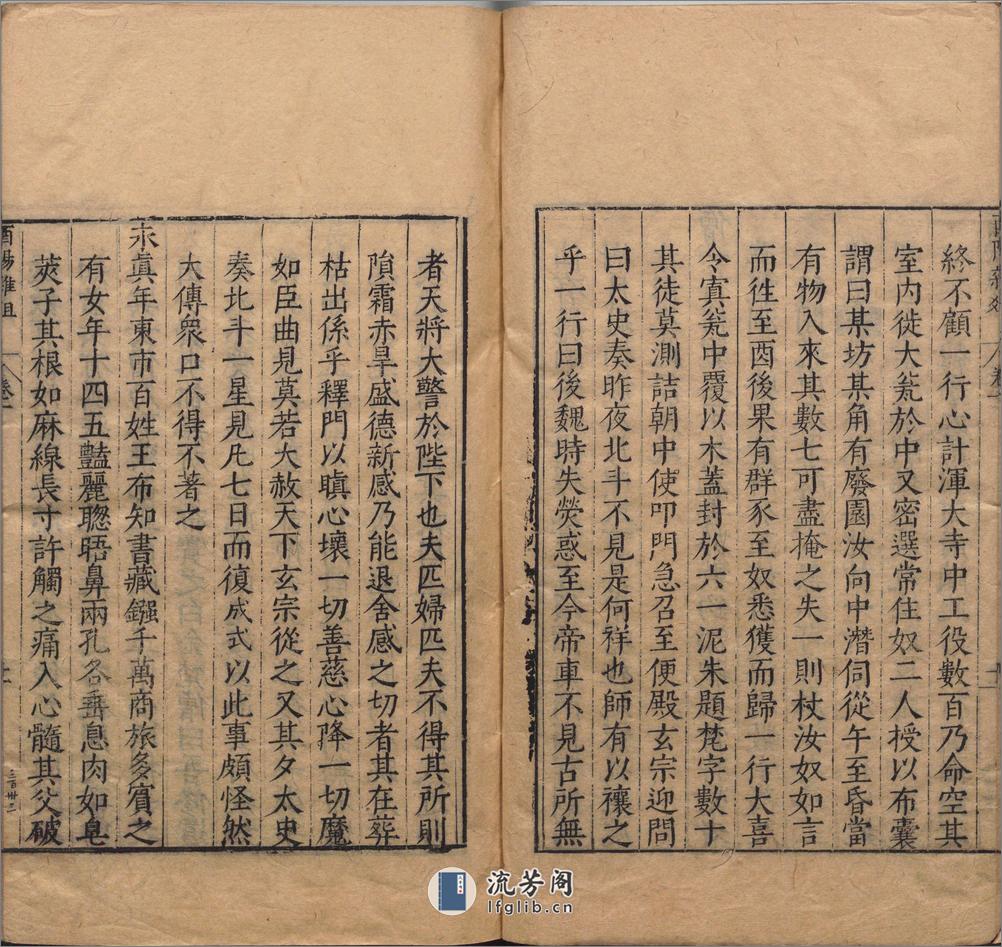 終不顧一行心計渾大寺中工役數百乃命空其
室内徙大瓮於中又密選常住奴二人授以布囊
謂曰某坊某角有廢園汝向中潛伺從午至昏當
有物入來其數七可盡掩之失一則杖汝奴如言
而徃至酉後果有群豕至奴悉獲而歸一行大喜
令寘瓮中覆以木蓋封於六一泥朱題梵字數十
其徒莫測詰朝中使叩門急召至便殿玄宗迎問
曰太史奏昨夜北斗不見是何祥也師有以禳之
乎一行曰後魏時失熒惑至今帝車不見古所無
者天將大警於陛下也夫匹婦匹夫不得其所則
隕霜赤旱盛德新感乃能退舍感之切者其在葬
枯出係乎釋門以瞋心壞一切善慈心降一切魔
如臣曲見莫若大赦天下玄宗從之又其夕太史
奏北斗一星見凡七日而復成式以此事頗怪然
大傳衆口不得不著之
永貞年東市百姓王布知書藏鏹千萬商旅多賓之
有女年十四五豔麗聰晤鼻兩孔各垂息肉如皂
莢子其根如麻線長寸許觸之痛入心髓其父破
酉陽雜俎
卷一
三百卅三
流芳阁
lfglib.cn